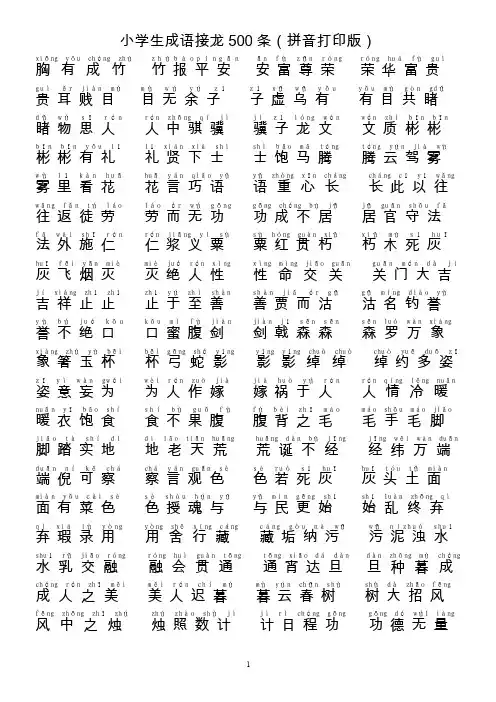 小学生成语接龙 500 条（拼音打印版）
xiōng yǒu chéng zhú zhú bào píng ān ān fù zūn róng róng huá fù guì
胸有成竹 竹报平安 安富尊荣 荣华富贵
guì ěr jiàn mù mù wú yú zǐ zǐ xū wū yǒu yǒu mù gòng dǔ
贵耳贱目 目无余子 子虚乌有 有目共睹
dǔ wù sī rén rén zhōng qí jì jì zǐ lóng wén wén zhì bīn bīn
睹物思人 人中骐骥 骥子龙文 文质彬彬
bīn bīn yǒu lǐ lǐ xián xià shì shì bǎo mǎ téng téng yún jià wù
彬彬有礼 礼贤下士 士饱马腾 腾云驾雾
wù lǐ kàn huā huā yán qiǎo yǔ yǔ zhòng xīn cháng cháng cǐ yǐ wǎng
雾里看花 花言巧语 语重心长 长此以往
wǎng fǎn tú láo láo ér wú gōng gōng chéng bù jū jū guān shǒu fǎ
往返徒劳 劳而无功 功成不居 居官守法
fǎ wài shī rén rén jiāng yì sù sù hóng guàn xiǔ xiǔ mù sǐ huī
法外施仁 仁浆义粟 粟红贯朽 朽木死灰
huī fēi yān miè miè jué rén xìng xìng mìng jiāo guān guān mén dà jí
灰飞烟灭 灭绝人性 性命交关 关门大吉
jí xiáng zhǐ zhǐ zhǐ yú zhì shàn shàn jiǎ ér gū gū míng diào yù
吉祥止止 止于至善 善贾而沽 沽名钓誉
yù bù jué kǒu kǒu mì fù jiàn jiàn jǐ sēn sēn sēn luó wàn xiàng
誉不绝口 口蜜腹剑 剑戟森森 森罗万象
xiàng zhù yù bēi bēi gōng shé yǐng yǐng yǐng chuò chuò chuò yuē duō zī
象箸玉杯 杯弓蛇影 影影绰绰 绰约多姿
zī yì wàng wéi wèi rén zuò jià jià huò yú rén rén qíng lěng nuǎn
姿意妄为 为人作嫁 嫁祸于人 人情冷暖
nuǎn yī bǎo shí shí bù guǒ fù fù bèi zhī máo máo shǒu máo jiǎo
暖衣饱食 食不果腹 腹背之毛 毛手毛脚
jiǎo tà shí dì dì lǎo tiān huāng huāng dàn bù jīng jīng wěi wàn duān
脚踏实地 地老天荒 荒诞不经 经纬万端
duān ní kě chá chá yán guān sè sè ruò sǐ huī huī tóu tǔ miàn
端倪可察 察言观色 色若死灰 灰头土面
miàn yǒu cài sè sè shòu hún yǔ yǔ mín gēng shǐ shǐ luàn zhōng qì
面有菜色 色授魂与 与民更始 始乱终弃
qì xiá lù yòng yòng shě xíng cáng cáng gòu nà wū wū ní zhuó shuǐ
弃瑕录用 用舍行藏 藏垢纳污 污泥浊水
shuǐ rǔ jiāo róng róng huì guàn tōng tōng xiāo dá dàn dàn zhǒng mù chéng
水乳交融 融会贯通 通宵达旦 旦种暮成
chéng rén zhī měi měi rén chí mù mù yún chūn shù shù dà zhāo fēng
成人之美 美人迟暮 暮云春树 树大招风
fēng zhōng zhī zhú zhú zhào shù jì jì rì chéng gōng gōng dé wú liàng
风中之烛 烛照数计 计日程功 功德无量
1